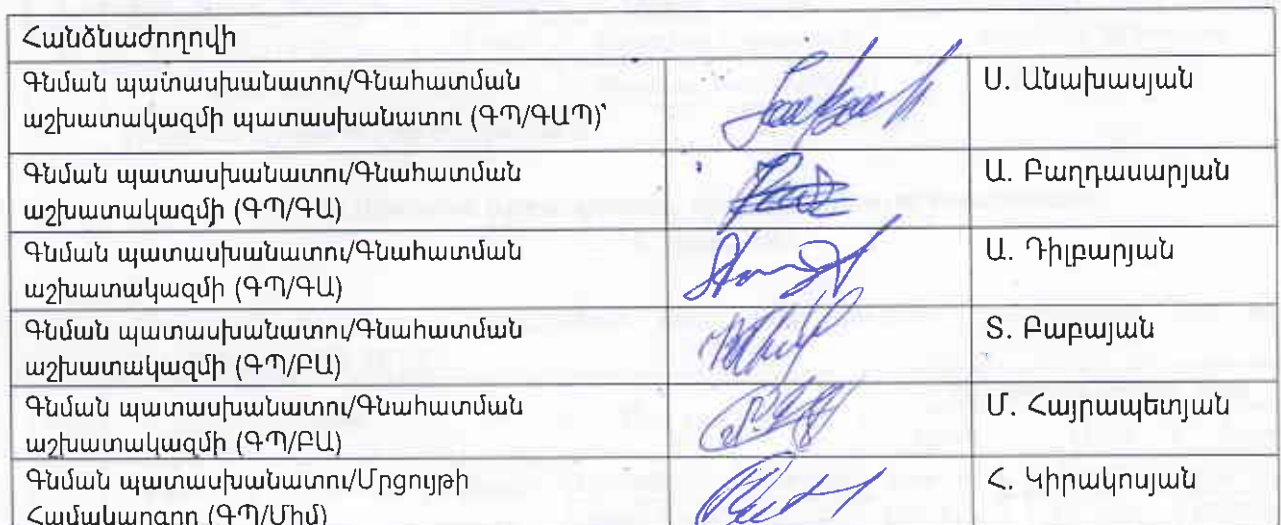 Հանձնաժողովի
Գնման պատասխանատու/Գնահատման
աշխատակազմի պատասխանատու (ԳՊ/ԳԱՊ)՝
Ս. Անախասյան
Գնման պատասխանատու/Գնահատման
աշխատակազմի (ԳՊ/ԳԱ)
Ա. Բաղդասարյան
Գնման պատասխանատու/Գնահատման
աշխատակազմի (ԳՊ/ԳԱ)
Ա. Դիլբարյան
Գնման պատասխանատու/Գնահատման
աշխատակազմի (ԳՊ/ԲԱ)
Տ. Բաբայան
Գնման պատասխանատու/Գնահատման
աշխատակազմի (ԳՊ/ԲԱ)
Մ. Հայրապետյան
Գնման պատասխանատու/Մրցույթի
Համակարգող (ԳՊ/Միմ)
Հ. Կիրակոսյան